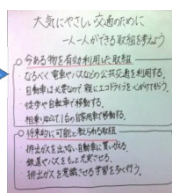 大気にやさしい交通のために
一人一人ができる取組を考えよう
今ある物を有効利用した取組
なるべく電車やバスなどの公共交通を利用する。
自動車は必要なので、親にエコドライブを心がけてもらう。
徒歩や自転車で移動する。
相乗りなどして1台の自家用車で移動する。
将来的に可能と思われる取組
排出ガスを出さない自動車に買い替える。
鉄道やバスをもっと充実させる。
排出ガスを意識させる学習を多く行う。